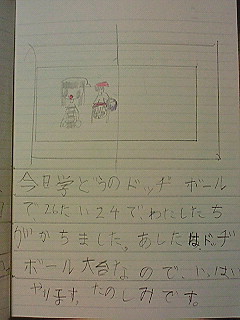 今日学どうのドッヂ ボール
で2たい24で、わたしたち
がかちました。あしたは、ドッヂ
ボール大会なので、いっぱい
やります。たのしみです。